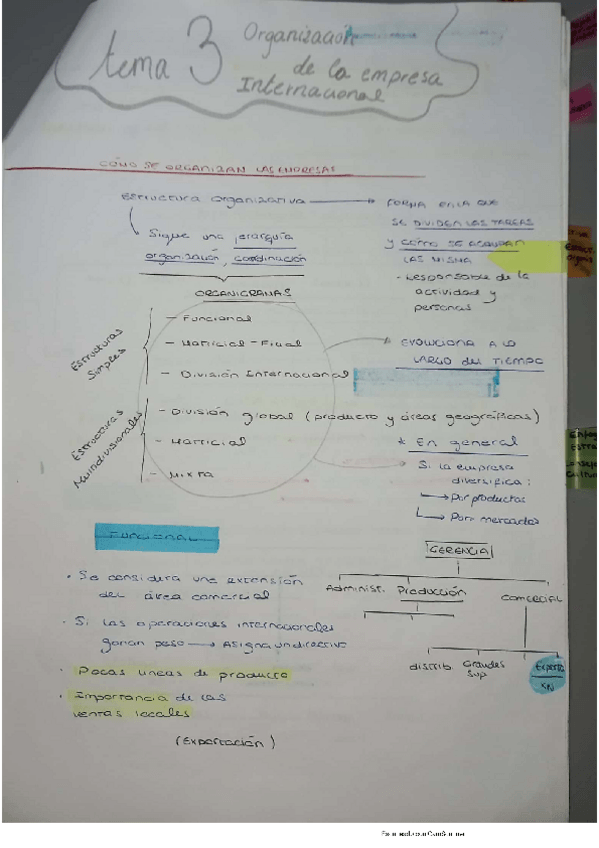 tema 3 Organización
de la empresa
Internacional
CÓMO SE ORGANIZAN LAS EMPRESAS
Estructura organizativa → FORMA EN LA QUE
SE DIVIDEN LAS TAREAS
y CÓMO SE AGRUPAN
LAS MISMA
- Responsable de la
actividad y
personas
Sigue una jerarquía
organización, coordinación
ORGANIGRAMAS
Estructuras
Simples
- Funcional
- Matricial - Filial
- División Internacional
→ EVOLUCIONA A LO
LARGO del TIEMPO
Estructuras
Multidivisionales
- División global (producto y áreas geográficas)
- Matricial
- Mixta
* En general
Si la empresa
diversifica:
→ Por productos
→ Por mercados
FUNCIONAL
• Se considera una extensión
del área comercial
• Si las operaciones internacionales
ganan peso → Asigna un directivo
• Pocas líneas de producto
• Importancia de las
ventas locales
(Exportación)
GERENCIA
Administ. Producción COMERCIAL
distrib Grandes
Sup